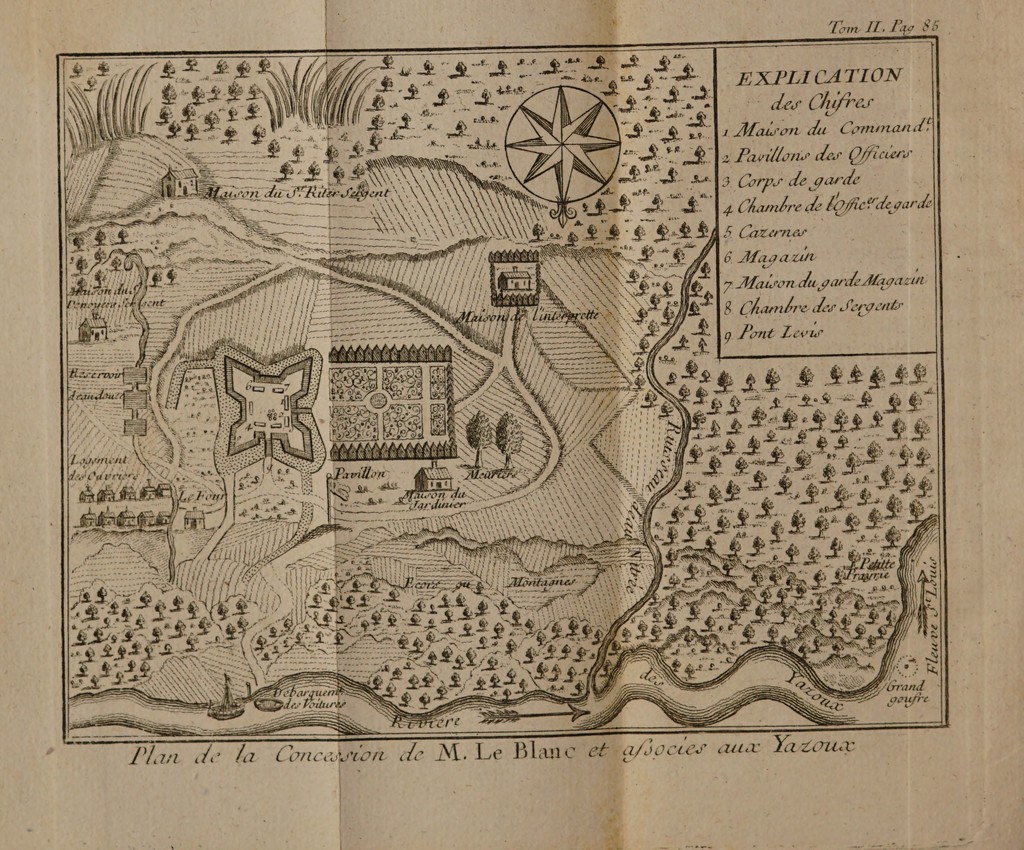 Tom II. Pag 85
EXPLICATION
des Chifres
1 Maison du Command.t
2 Pavillons des Officiers
3 Corps de garde
4 Chambre de l'Offic.er de garde
5 Cazernes
6 Magazin
7 Maison du garde Magazin
8 Chambre des Sergents
9 Pont Levis
Maison du S.r Riter Sergent
Maison du
Sergent
Maison de l'interprette
Reservoir
d'eau douse
Logement
des Ouvriers
Le Four
Pavillon
Meuriers
Maison du
Jardinier
Ruisseau
Nitre
Ecors ou Montagnes
Petitte
Fleuve S.t Louis
Grand
goufre
Debarquem.
des Voitures
Riviere des Yazoux
Plan de la Concession de M. Le Blanc et associes aux Yazoux